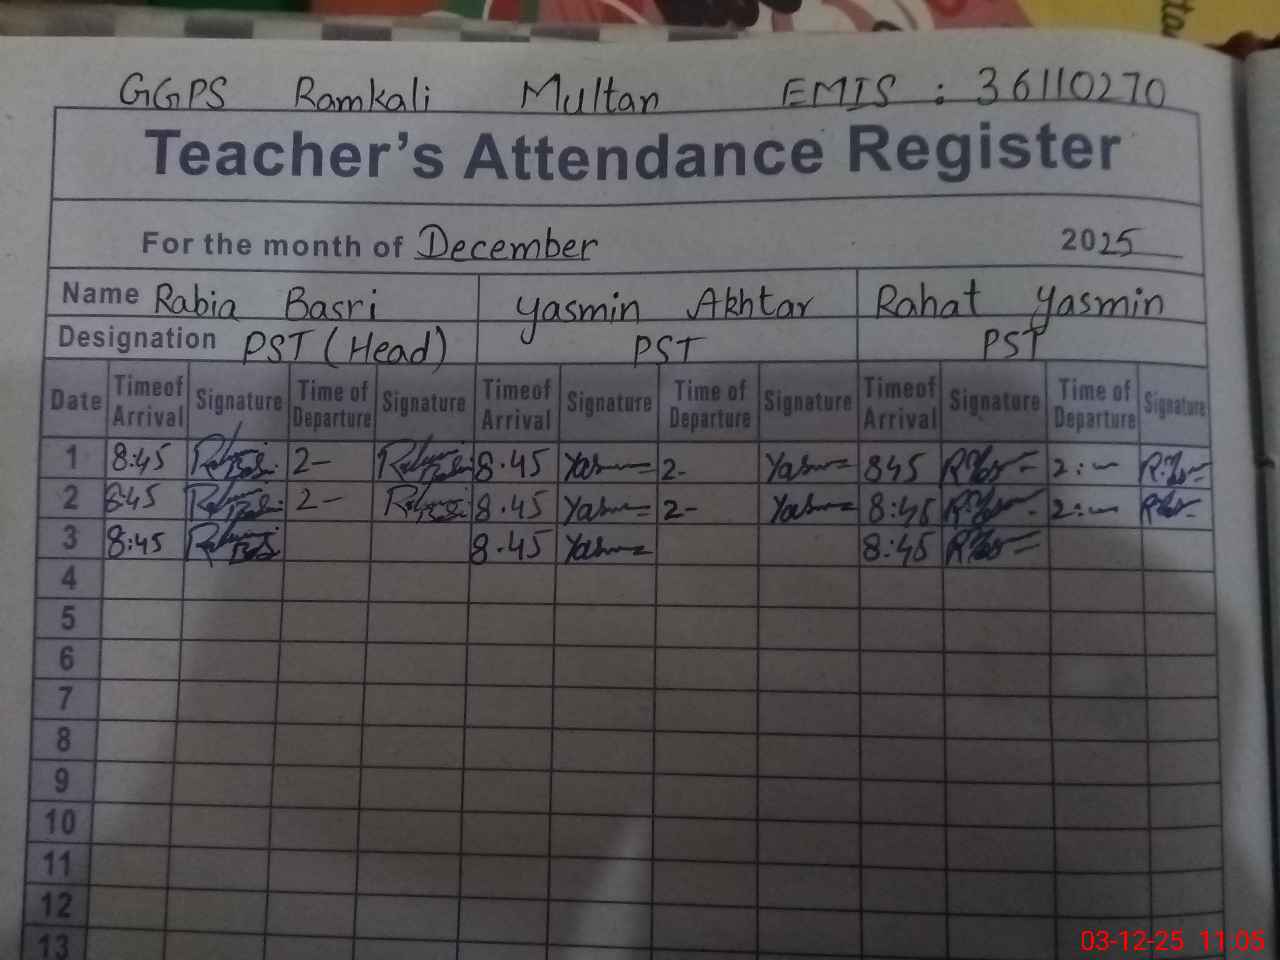 GGPS Ramkali Multan EMIS : 36110270
Teacher's Attendance Register
For the month of December 2025
Name Rabia Basri Yasmin Akhtar Rahat Yasmin
Designation PST (Head) PST PST
Date Timeof Arrival Signature Time of Departure Signature Timeof Arrival Signature Time of Departure Signature Timeof Arrival Signature Time of Departure Signature
1 8:45 2- 8.45 2- 845 2:-
2 8:45 2- 8.45 2- 8:45 2:-
3 8:45 8.45 8:45
4
5
6
7
8
9
10
11
12
13
03-12-25 11:05